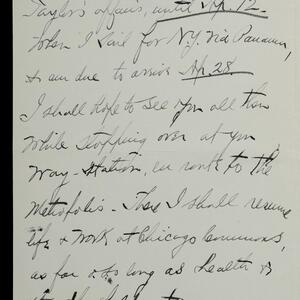 Taylor's affairs, until Ap. 12-
when I sail for N.Y. via Panama,
& am due to arrive Ap. 28.
I shall hope to see you all then
while stopping over at you
Way-Station, en route to the
Metropolis - There I shall resume
life & work at Chicago Commons,
as far & as long as health &